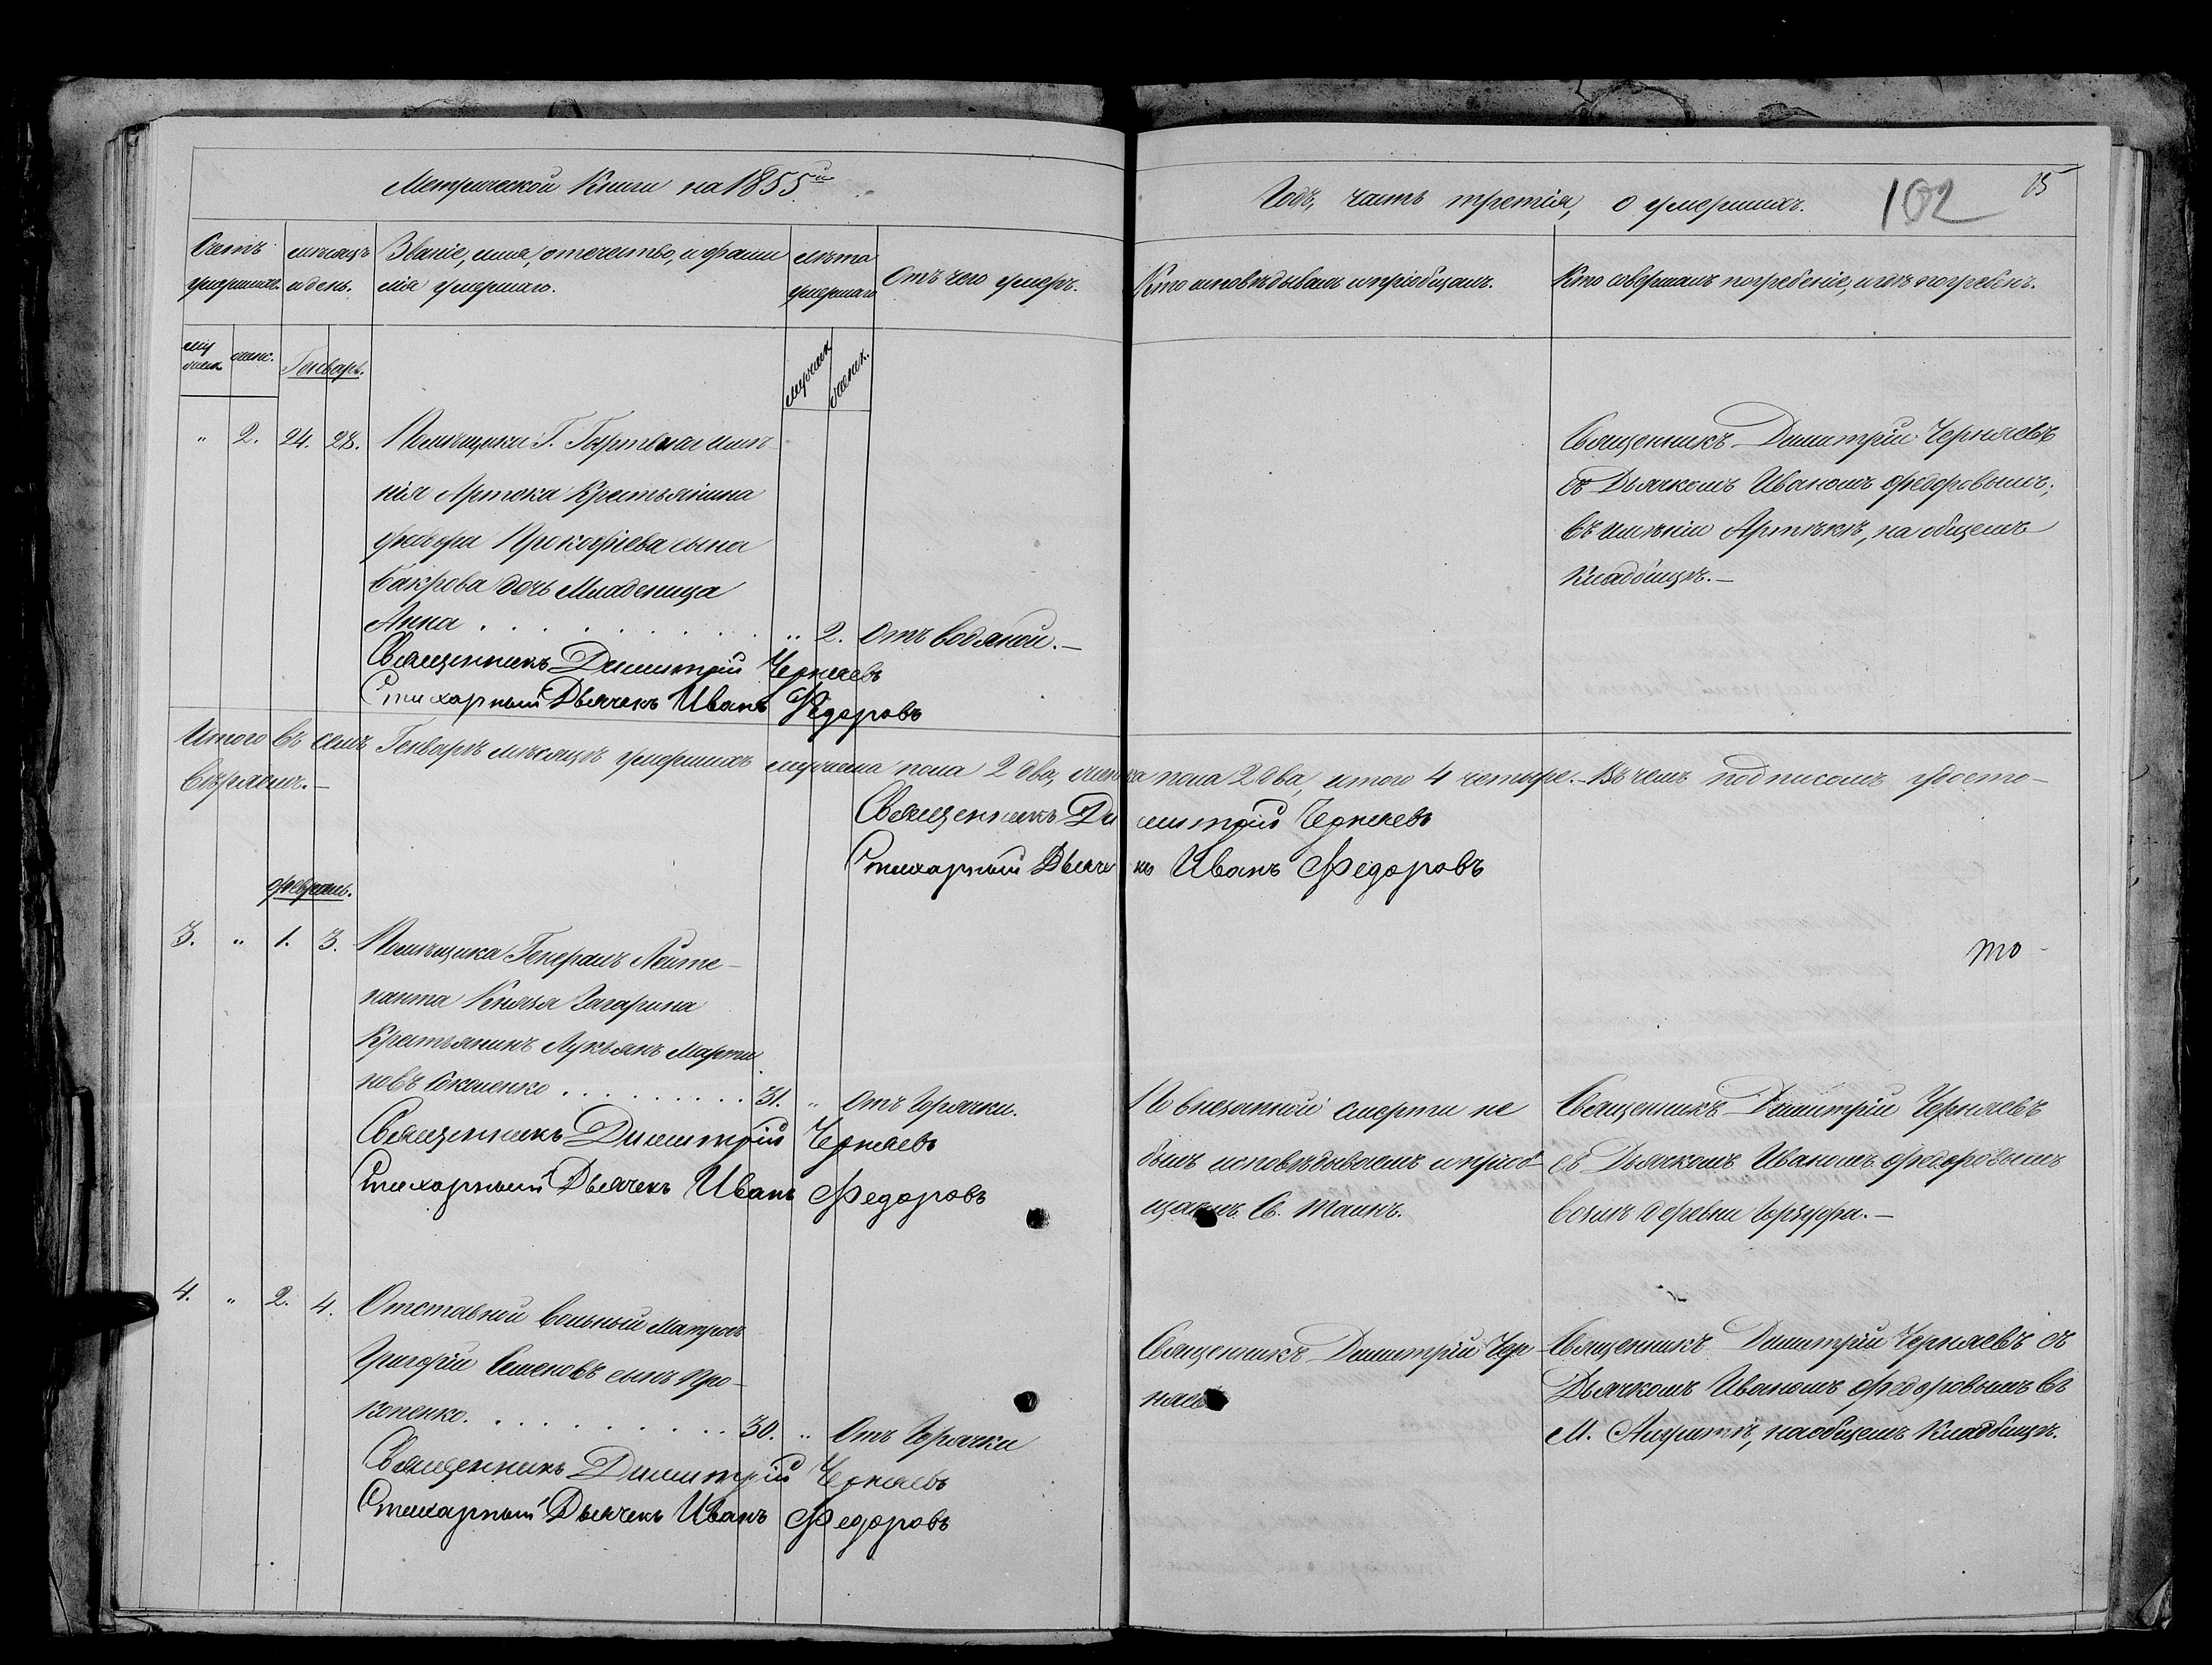 Метрической Книги на 1855й
Годъ, часть третія, о умершихъ.
102
85
Счетъ умершихъ.
мѣсяцъ и день.
Званіе, имя, отечество, и фами
лія умершаго.
лѣта умершаго
Отъ чего умеръ.
Кто исповѣдывалъ и пріобщалъ.
Кто совершалъ погребеніе, и гдѣ погребенъ.
муж
женс.
Генварь.
" 2. 24. 28. Помѣщика Г. имѣ
нія Артека Крестьянина
Федора Прокофіева сына
дочь Младеница
Анна . . . . . . . . . " 2. Отъ водяной.—
Священникъ Димитрій Черняевъ
съ Дьячкомъ Иваномъ Федоровымъ;
въ имѣніи Артѣкѣ, на общемъ
Кладбищѣ.—
Священникъ Димитрій Черняевъ
Стихарный Дьячекъ Иванъ Федоровъ
Итого въ семъ Генварѣ мѣсяцѣ умершихъ мужеска пола 2 два, женска пола 2 два, итого 4 четыре.— Въ чемъ подписомъ удосто—
вѣряемъ.—
Священникъ Димитрій Черняевъ
Стихарный Дьячекъ Иванъ Федоровъ
Февраль.
3. " 1. 3. Помѣщика Генералъ Лейте—
нанта Князя Гагарина
Крестьянинъ Лукьянъ Марти
новъ . . . . . . . . . 31. " Отъ Горячки.
то
По внезапной смерти не
былъ исповѣдываемъ и пріоб—
щаемъ Св. Таинъ.
Священникъ Димитрій Черняевъ
съ Дьячкомъ Иваномъ Федоровымъ
возлѣ деревни Гурзуфа.—
Священникъ Димитрій Черняевъ
Стихарный Дьячекъ Иванъ Федоровъ
4. " 2. 4. Отставной вольный Матросъ
Григорій Семеновъ сынъ Про—
копенко. . . . . . . . . 30. " Отъ Горячки
Священникъ Димитрій Чер—
няевъ
Священникъ Димитрій Черняевъ съ
Дьячкомъ Иваномъ Федоровымъ въ
М. на общемъ Кладбищѣ.
Священникъ Димитрій Черняевъ
Стихарный Дьячекъ Иванъ Федоровъ